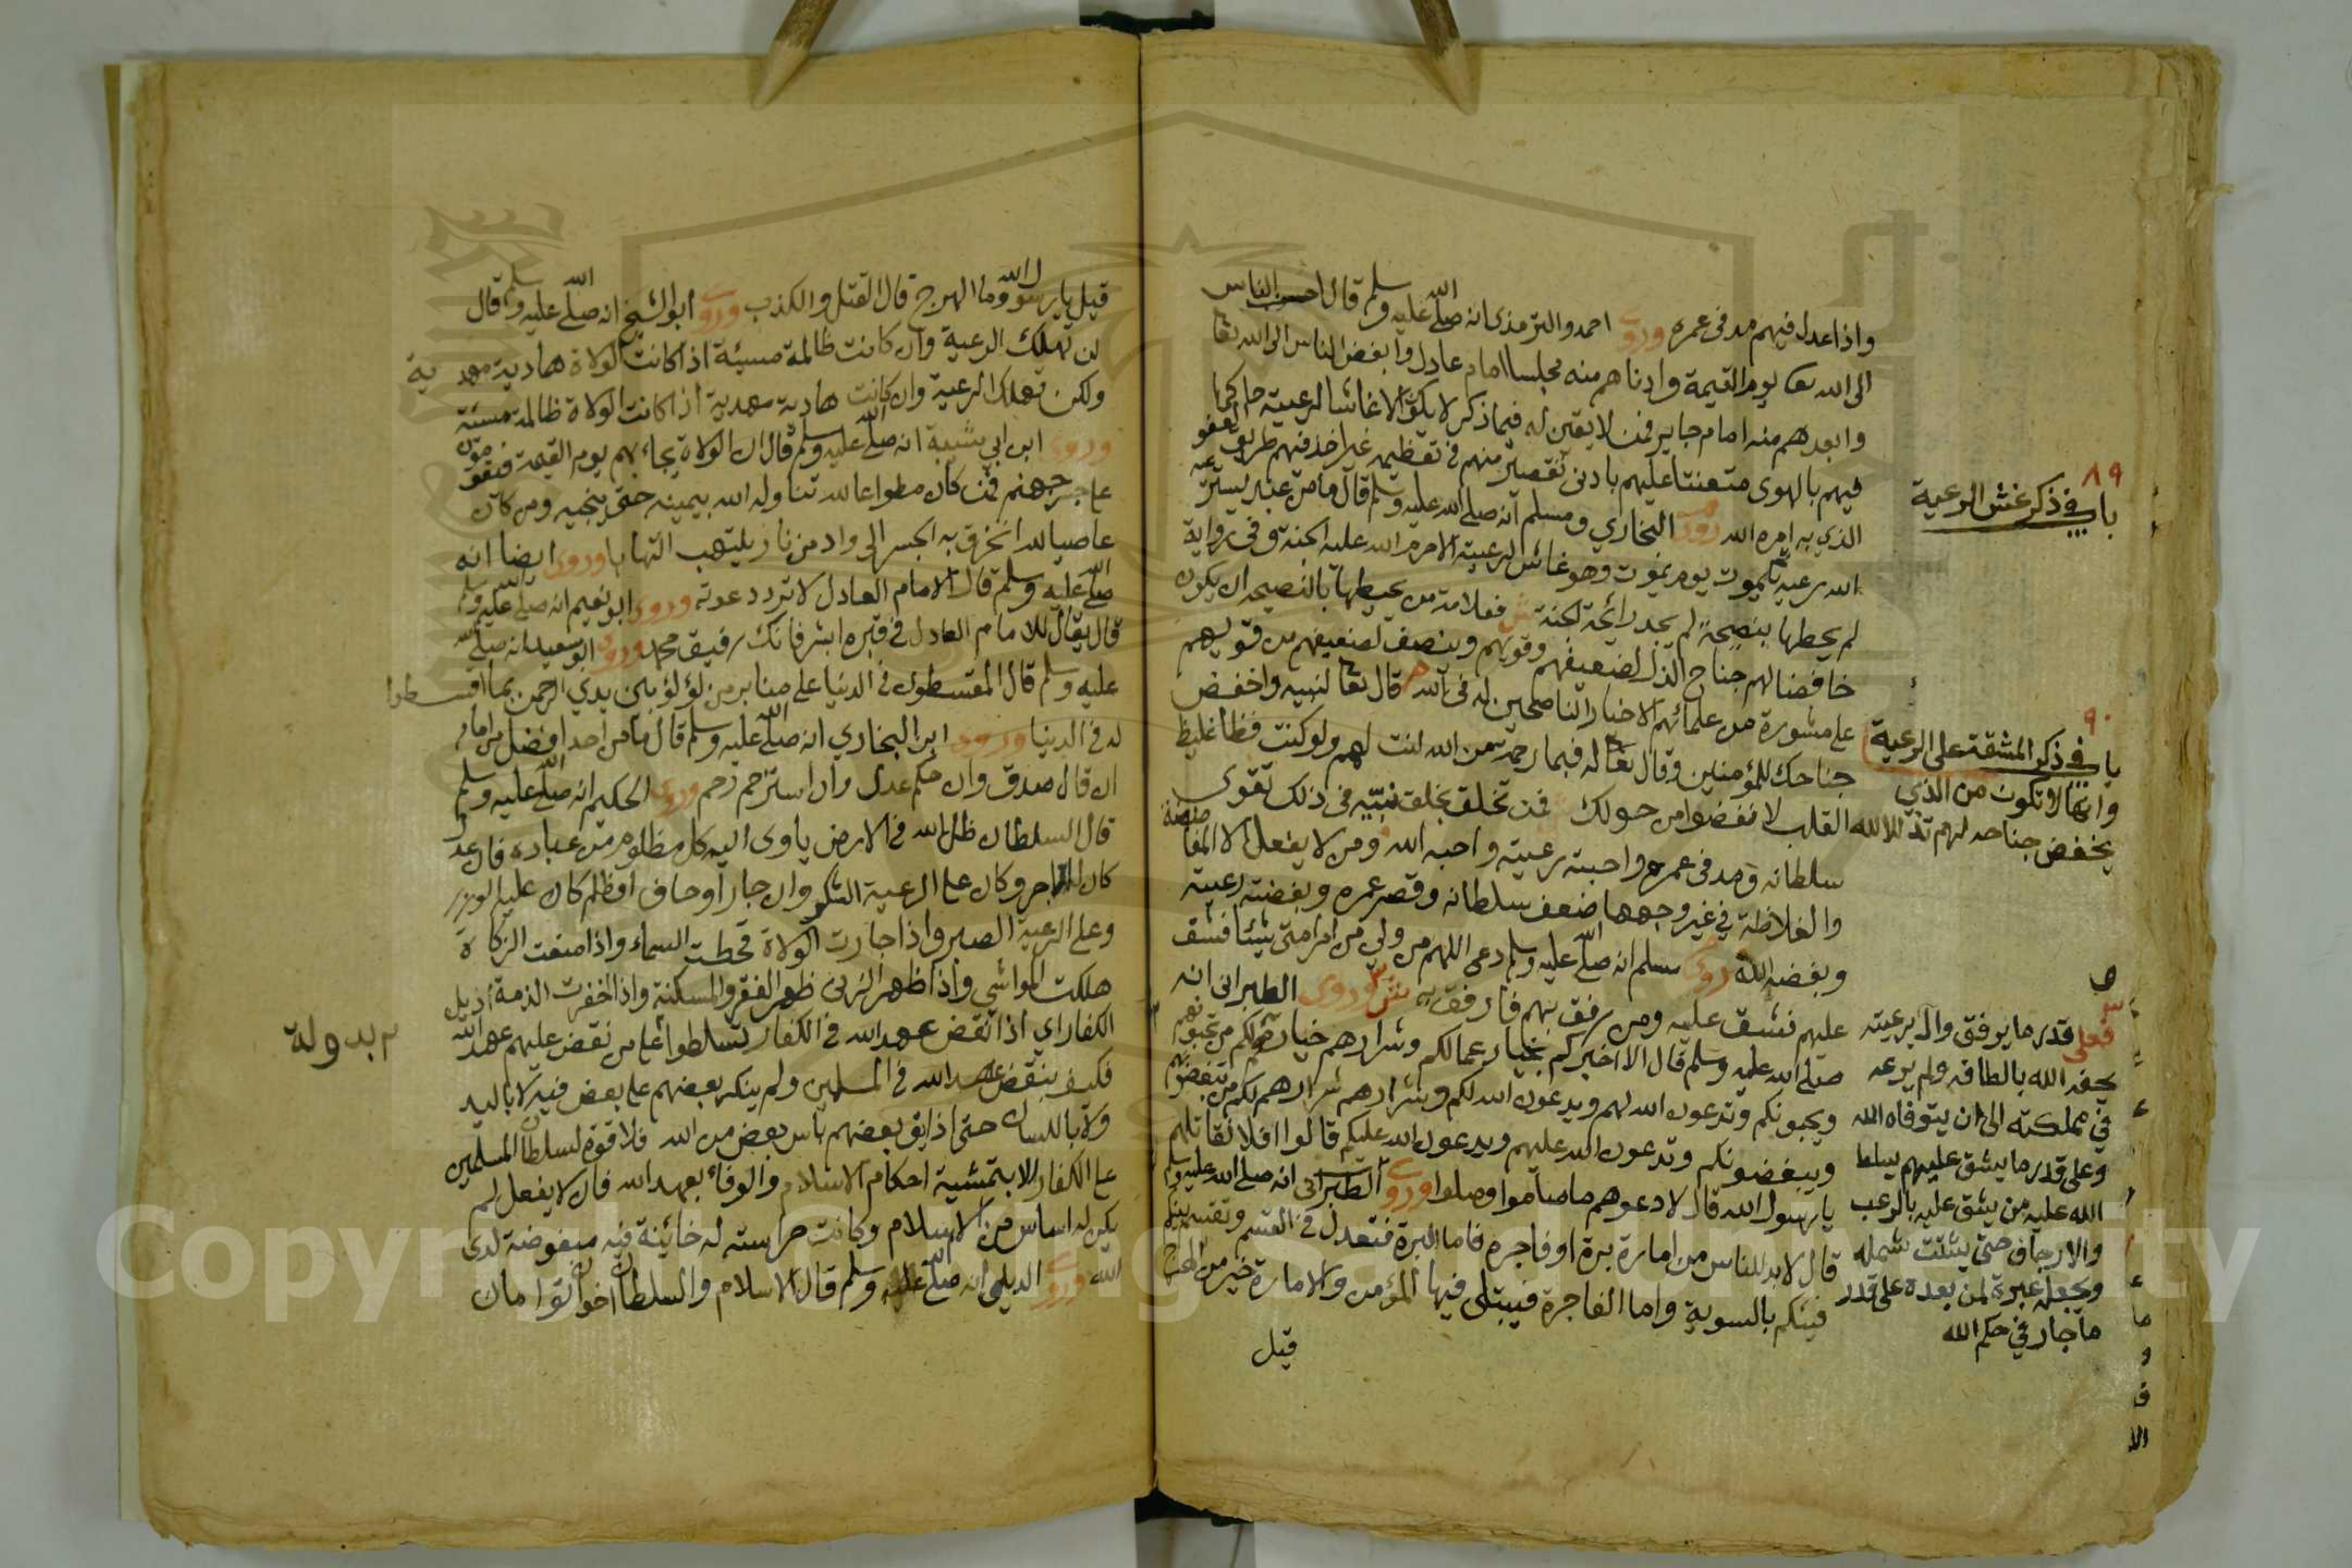 واذا عدل فيهم مد فى عمره وروى احمد والترمذى انه صلى الله عليه وسلم قال احب الناس
الى الله تعا يوم القيمة وادناهم منه مجلسا امام عادل وابغض الناس الى الله تعا
وابعدهم منه امام جاير فمن لا يقين له فيما ذكر لا يكون الا غاشا لرعيته حاكما
فيهم بالهوى متعنتا عليهم بادنى تقصير منهم فى تعظيمه غير اخذ فيهم طريق العفو
الذي به امره الله روى البخاري ومسلم انه صلى الله عليه وسلم قال ما من عبد يسترعيه
الله رعية يموت يوم يموت وهو غاش لرعيته الا حرم الله عليه الجنة وفى رواية
لم يحطها بنصيحة لم يجد رائحة الجنة ش فعلامة من يحيطها بالنصيحه ان يكون
خافضا لهم جناح الذل لضعيفهم وقويهم وينصف لضعيفهم من قويهم
على مشورة من علمائهم الاخيار الناصحين له فى الله قال تعا لنبيه واخفض
جناحك للمؤمنين وقال تعا له فبما رحمة من الله لنت لهم ولو كنت فظا غليظ
القلب لا نفضوا من حولك فمن تخلق بخلق نبيه فى ذلك تقوى
سلطانه ومد فى عمره واحبته رعيته واحبه الله ومن لا يفعل الا
والغلاظة في غير وجهها ضعف سلطانه وقصر عمره وبغضته رعيته
وبغضه الله روى مسلم انه صلى الله عليه وسلم دعى اللهم من ولي من امر امتى شيئا فشق
عليهم فشق عليه ومن رفق بهم فارفق به ش وروى الطبرانى انه
صلى الله عليه وسلم قال الا اخبركم بخيار عمالكم وشرارهم خيارهم لكم من تحبونهم
ويحبونكم وتدعون الله لهم ويدعون الله لكم وشرارهم شرارهم لكم من تبغضونهم
ويبغضونكم وتدعون الله عليهم ويدعون الله عليكم قالوا افلا نقاتلهم
يا رسول الله قال لا دعوهم ما صاموا وصلوا وروى الطبرانى انه صلى الله عليه وسلم
قال لا بد للناس من امارة برة او فاجرة فاما البرة فتعدل فى القسم وتقسم بينكم
فيئكم بالسوية واما الفاجرة فيبتلى فيها المؤمن والامارة خير من الهرج
قيل
٨٩
باب في ذكر غش الرعية
٩٠
باب في ذكر المشقة على الرعية
وانها لا تكون من الذي
يخفض جناحه لهم تذللا لله
فعلى قدر ما يرفق وال برعيته
يحفه الله بالطافه ولم يرعه
في مملكته الى ان يتوفاه الله
وعلى قدر ما يشق عليهم يسلط
الله عليه من يشق عليه بالرعب
والارجاف حتى يشتت شمله
ويجعله عبرة لمن بعده على قدر
ما جار في حكم الله
قيل يا رسول الله وما الهرج قال القتل والكذب وروى ابو الشيخ انه صلى الله عليه وسلم قال
لن تهلك الرعية وان كانت ظالمة مسيئة اذا كانت الولاة هادية مهدية
ولكن تهلك الرعية وان كانت هادية مهدية اذا كانت الولاة ظالمة مسئة
وروى ابن ابي شيبة انه صلى الله عليه وسلم قال ان الولاة يجاء بهم يوم القيمة فيقفون
على جسر جهنم فمن كان مطواعا لله تناوله الله بيمينه حتى ينجيه ومن كان
عاصيا لله انخرق به الجسر الى واد من نار يلتهب التهابا وروى ايضا انه
صلى الله عليه وسلم قال الامام العادل لا ترد دعوته وروى ابو نعيم انه صلى الله عليه وسلم
قال يقال للامام العادل فى قبره ابشر فانك رفيق محمد وروى ابو سعيد انه صلى الله
عليه وسلم قال المقسطون فى الدنيا على منابر من لؤلؤ بين يدي الرحمن بما اقسطوا
له فى الدنيا وروى ابن البخاري انه صلى الله عليه وسلم قال ما من احد افضل من امام
ان قال صدق وان حكم عدل وان استرحم رحم وروى الحكيم انه صلى الله عليه وسلم
قال السلطان ظل الله فى الارض ياوى اليه كل مظلوم من عباده فان عدل
كان له الاجر وكان على الرعية الشكر وان جار او حاف او ظلم كان عليه الوزر
وعلى الرعية الصبر واذا جارت الولاة قحطت السماء واذا منعت الزكاة
هلكت المواشي واذا ظهر الزنى ظهر الفقر والمسكنة واذا اخفرت الذمة اذيل
الكفار اي اذا نقض عهد الله فى الكفار تسلطوا على من نقض عليهم عهد الله
فكيف بنقض عهد الله فى المسلمين ولم ينكر بعضهم على بعض فيه لا باليد
ولا باللسان حتى اذايق بعضهم باس بعض من الله فلا قوة لسلطان المسلمين
على الكفار الا بتمشية احكام الاسلام والوفاء بعهد الله فان لا يفعل لم
يكن له اساس من الاسلام وكانت حراسته له خائنة فيه مبغوضة لدى
الله وروى الديلمى انه صلى الله عليه وسلم قال الاسلام والسلطان اخوان توامان
بدولة